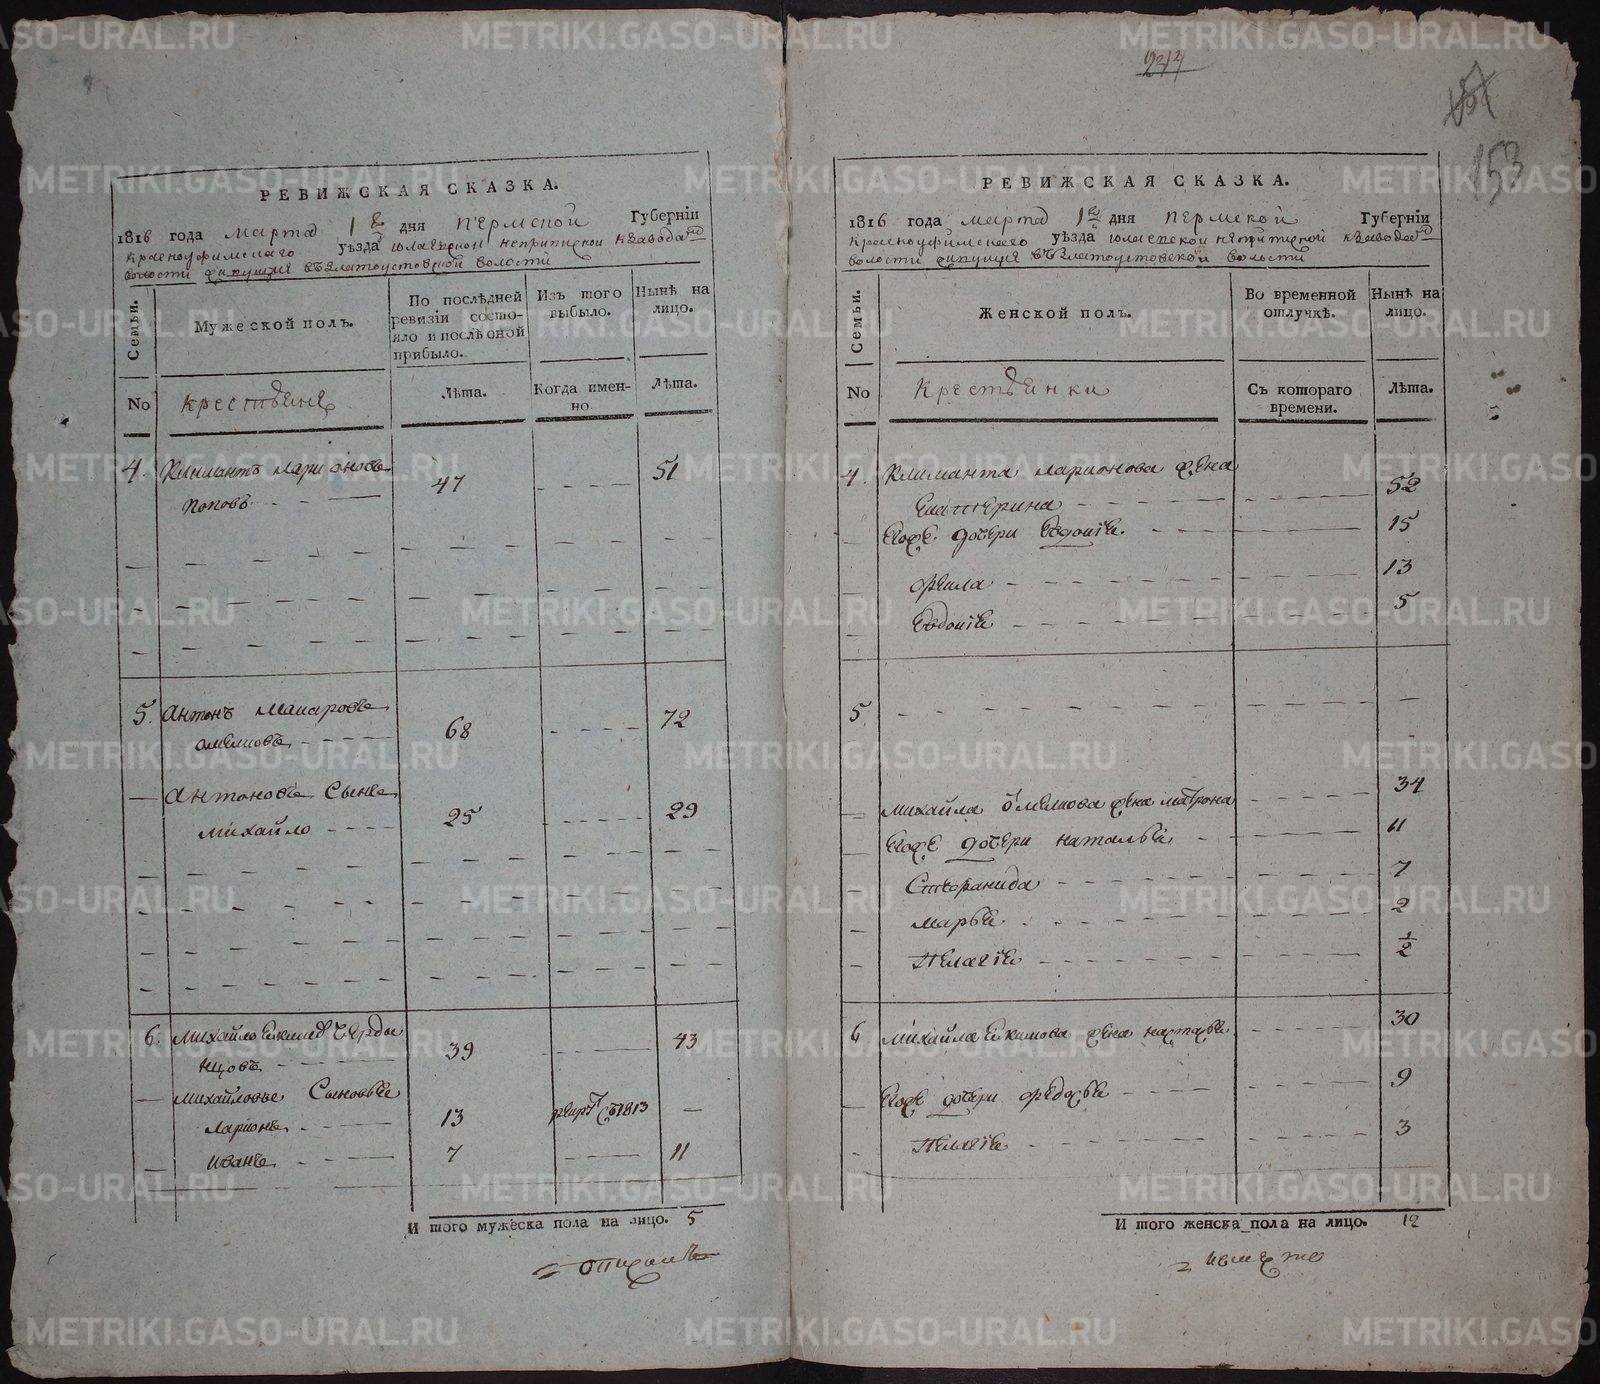 РЕВИЖСКАЯ СКАЗКА.
1816 года марта 1 дня Пермской Губерніи
Красноуфимскаго уѣзда
волости живущія въ Златоустовской волости
Семьи.
Мужеской полъ.
По послѣдней ревизіи состо-
яло и послѣ оной
прибыло.
Изъ того
выбыло.
Нынѣ на
лицо.
No
крестьяне
Лѣта.
Когда имен-
но.
Лѣта.
4. Климантъ Ларионовъ
Поповъ 47 51
5. Антонъ Макаровъ
68 72
Антоновъ сынъ
Михайло 25 29
6. Михайло Екимовъ Черды
нцовъ 39 43
Михайловы сыновья
Ларионъ 13 1813 —
Иванъ 7 11
И того мужеска пола на лицо. 5
153
РЕВИЖСКАЯ СКАЗКА.
1816 года марта 1 дня Пермской Губерніи
Красноуфимскаго уѣзда
волости живущія въ Златоустовской волости
Семьи.
Женской полъ.
Во временной
отлучкѣ.
Нынѣ на
лицо.
No
крестьянки
Съ котораго
времени.
Лѣта.
4. Климанта Ларионова жена
Екатерина 52
Ево же дочери Евдокія 15
Фекла 13
Евдокія 5
5.
Михайла жена Матрона 34
Ево же дочери Наталья 11
Степанида 7
Марья 2
Пелагія 1/2
6 Михайла Екимова жена 30
Ево же дочери Федосья 9
Пелагія 3
И того женска пола на лицо. 12
METRIKI.GASO-URAL.RU